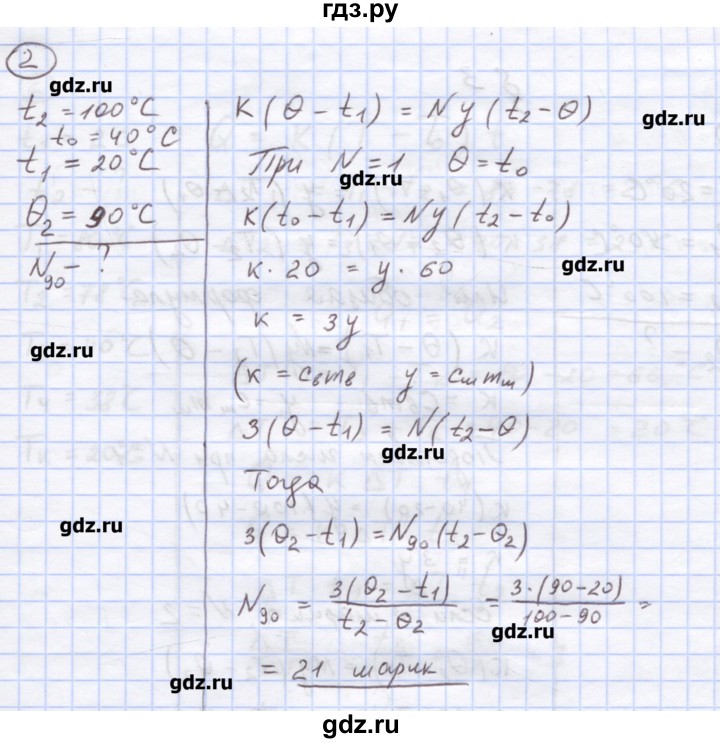 гдз.ру
2
gdz.ru
t₂ = 100°C
t₀ = 40°C
t₁ = 20°C
θ₂ = 90°C
N₉₀ - ?
gdz.ru
gdz.ru
K(θ - t₁) = Ny(t₂ - θ)
gdz.ru
При N = 1 θ = t₀
gdz.ru
K(t₀ - t₁) = Ny(t₂ - t₀)
к · 20 = y · 60
gdz.ru
к = 3y
(к = cвmв y = cшmш)
3(θ - t₁) = N(t₂ - θ)
gdz.ru
Тогда
3(θ₂ - t₁) = N₉₀(t₂ - θ₂)
N₉₀ = 3(θ₂ - t₁) / t₂ - θ₂ = 3·(90 - 20) / 100 - 90 =
gdz.ru
= 21 шарик
gdz.ru
gdz.ru